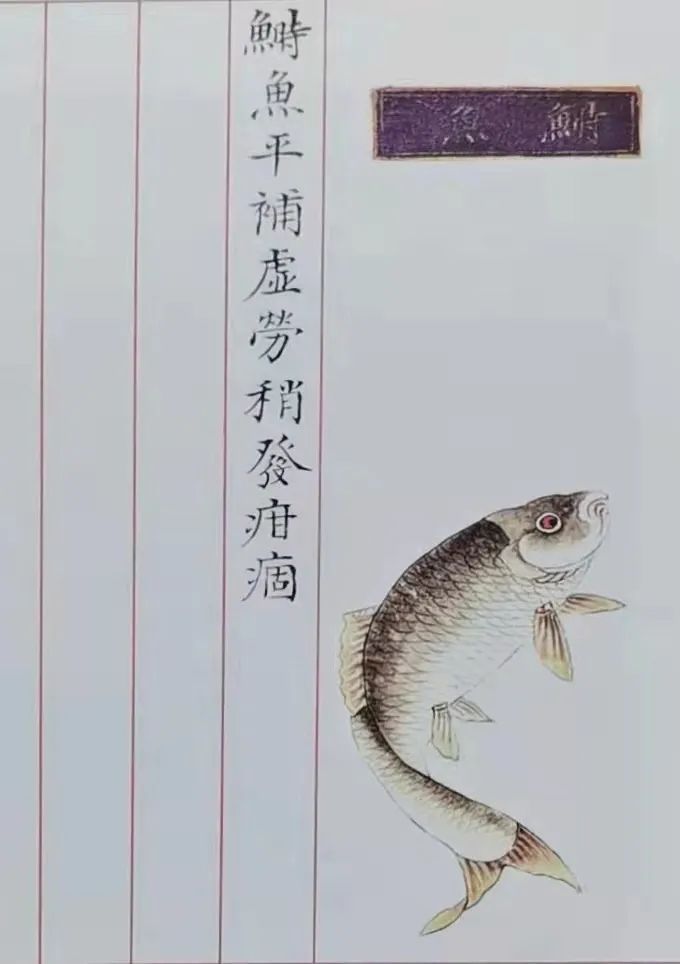 鰣魚
鰣魚平補虛勞稍發疳痼